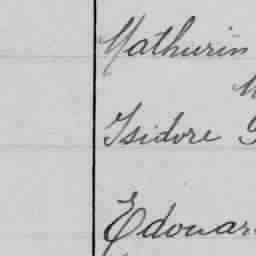 Mathurin
Isidore
Edouar